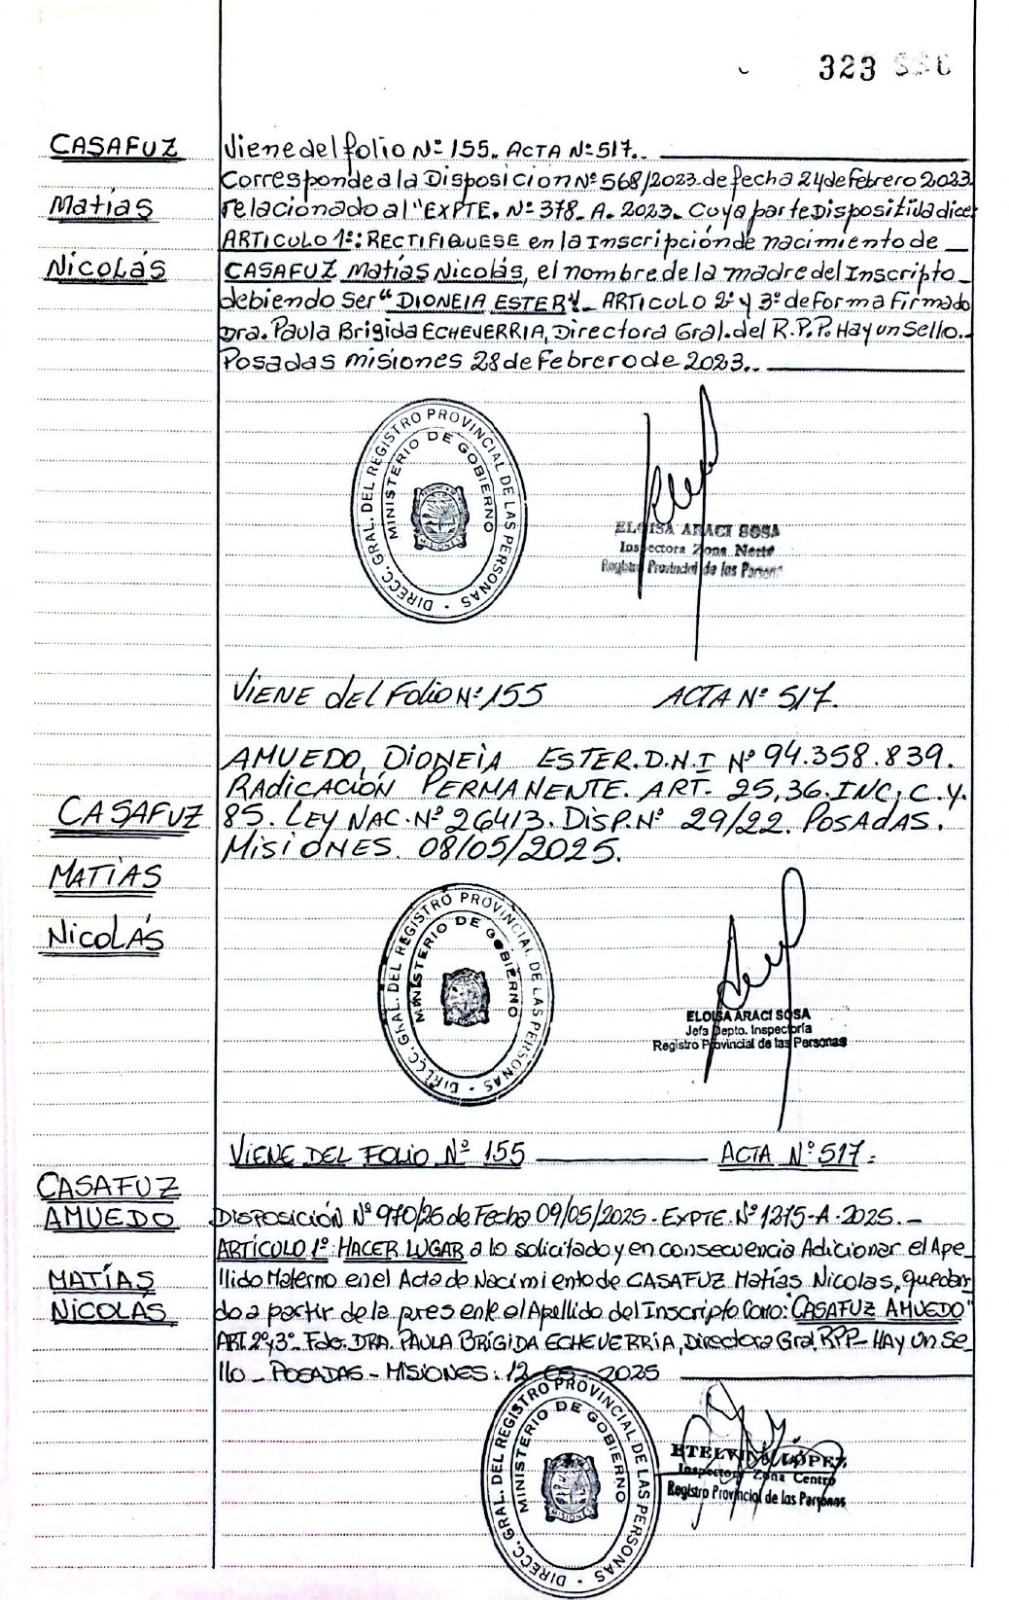 323
CASAFUZ
Matías
Nicolás
Viene del folio Nº 155. ACTA Nº 517.
Corresponde a la Disposición Nº 568/2023 de fecha 24 de febrero 2023
relacionado al "EXPTE. Nº 378_A_2023_ Cuya parte Dispositiva dice:
ARTICULO 1º: RECTIFIQUESE en la Inscripción de nacimiento de
CASAFUZ Matías Nicolás, el nombre de la madre del Inscripto
debiendo ser "DIONEIA ESTER"_ ARTICULO 2º y 3º de forma Firmado
Dra. Paula Brigida ECHEVERRIA, Directora Gral. del R.P.P. Hay un Sello.
Posadas misiones 28 de Febrero de 2023.
DIRECC. GRAL. DEL REGISTRO PROVINCIAL DE LAS PERSONAS
MINISTERIO DE GOBIERNO
MISIONES
ELOISA ARACI SOSA
Inspectora Zona Norte
Registro Provincial de las Person
VIENE del Folio Nº 155 ACTA Nº 517.
CASAFUZ
MATÍAS
NicolÁS
AMUEDO, DIONEIA ESTER. D.N.I Nº 94.358.839.
RADICACIÓN PERMANENTE. ART. 25,36. INC, C. Y.
85. LEY NAC. Nº 26413. DISP. Nº 29/22. POSADAS.
MISIONES. 08/05/2025.
DIRECC. GRAL. DEL REGISTRO PROVINCIAL DE LAS PERSONAS
MINISTERIO DE GOBIERNO
ELOISA ARACI SOSA
Jefa Depto. Inspectoría
Registro Provincial de las Personas
VIENE DEL FOLIO Nº 155 ACTA Nº 517:
CASAFUZ
AMUEDO
MATÍAS
NICOLÁS
DISPOSICIÓN Nº 970/25 de Fecha 09/05/2025 - EXPTE. Nº 1275-A-2025.-
ARTÍCULO 1º: HACER LUGAR a lo solicitado y en consecuencia Adicionar el Ape-
llido Materno en el Acta de Nacimiento de CASAFUZ Matías Nicolas, quedan-
do a partir de la presente el Apellido del Inscripto Como: "CASAFUZ AMUEDO"
ART. 2º y 3º. Fdo. DRA. PAULA BRÍGIDA ECHEVERRÍA, Directora Gral. RPP- HAY Un Se-
llo _ POSADAS - MISIONES: 12 2025
DIRECC. GRAL. DEL REGISTRO PROVINCIAL DE LAS PERSONAS
MINISTERIO DE GOBIERNO
MISIONES
ETELVINA LOPEZ
Inspectora Zona Centro
Registro Provincial de las Personas